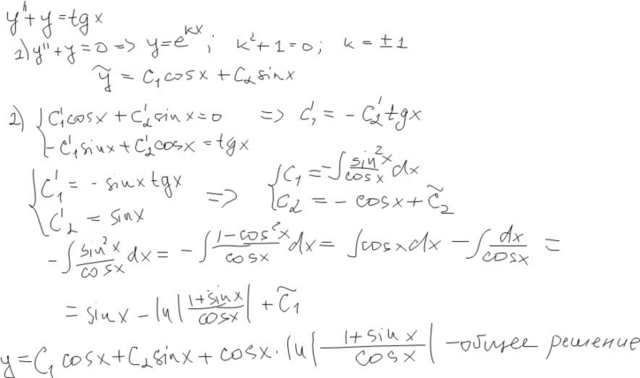 y'' + y = tg x
1) y'' + y = 0 => y = e^{kx}; k² + 1 = 0; k = ± 1
ỹ = C₁ cos x + C₂ sin x
2) { C₁' cos x + C₂' sin x = 0 => C₁' = - C₂' tg x
- C₁' sin x + C₂' cos x = tg x
{ C₁' = - sin x tg x => { C₁ = -∫ sin²x / cos x dx
C₂' = sin x C₂ = - cos x + C̃₂
-∫ sin²x / cos x dx = -∫ (1 - cos²x) / cos x dx = ∫ cos x dx - ∫ dx / cos x =
= sin x - ln | (1 + sin x) / cos x | + C̃₁
y = C₁ cos x + C₂ sin x + cos x · ln | - (1 + sin x) / cos x | - общее решение